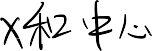 X和中心